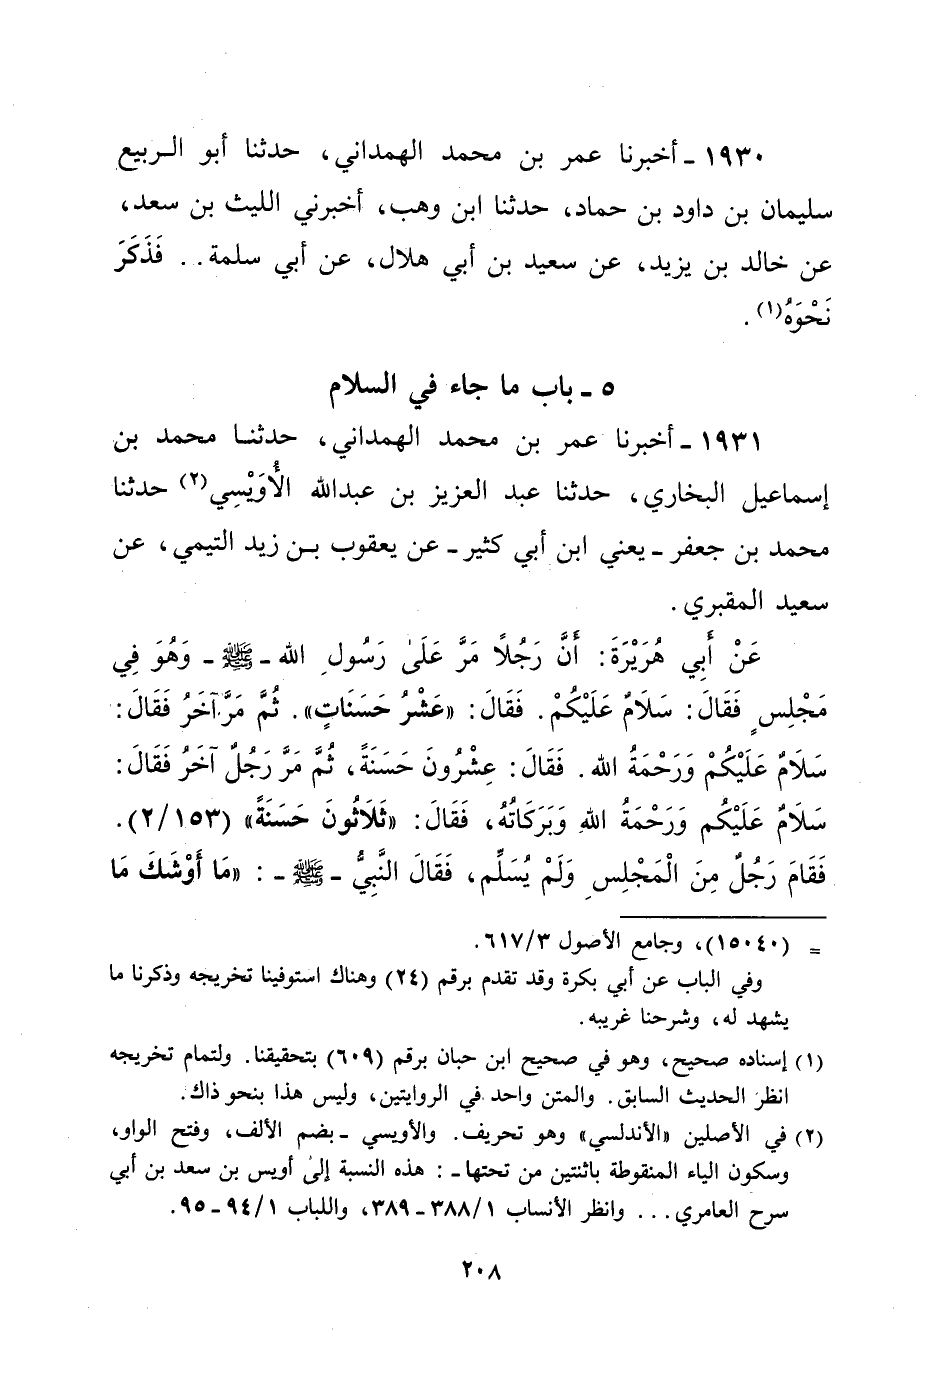 ١٩٣٠ ـ أخبرنا عمر بن محمد الهمداني، حدثنا أبو الربيع
سليمان بن داود بن حماد، حدثنا ابن وهب، أخبرني الليث بن سعد،
عن خالد بن يزيد، عن سعيد بن أبي هلال، عن أبي سلمة.. فَذَكَرَ
نَحْوَهُ(١).
٥ ـ باب ما جاء في السلام
١٩٣١ ـ أخبرنا عمر بن محمد الهمداني، حدثنا محمد بن
إسماعيل البخاري، حدثنا عبد العزيز بن عبدالله الأُوَيْسِي(٢) حدثنا
محمد بن جعفر ـ يعني ابن أبي كثير ـ عن يعقوب بن زيد التيمي، عن
سعيد المقبري.
عَنْ أَبِي هُرَيْرَةَ: أَنَّ رَجُلاً مَرَّ عَلَىٰ رَسُولِ الله ـ ﷺ ـ وَهُوَ فِي
مَجْلِسٍ فَقَالَ: سَلَامٌ عَلَيْكُمْ. فَقَالَ: «عَشْرُ حَسَنَاتٍ». ثُمَّ مَرَّ آخَرُ فَقَالَ:
سَلَامٌ عَلَيْكُمْ وَرَحْمَةُ الله. فَقَالَ: عِشْرُونَ حَسَنَةً، ثُمَّ مَرَّ رَجُلٌ آخَرُ فَقَالَ:
سَلَامٌ عَلَيْكُم وَرَحْمَةُ اللهِ وَبَرَكَاتُهُ، فَقَالَ: «ثَلَاثُونَ حَسَنَةً» (٢/١٥٣).
فَقَامَ رَجُلٌ مِنَ الْمَجْلِسِ وَلَمْ يُسَلِّم، فَقَالَ النَّبِيُّ ـ ﷺ ـ : «مَا أَوْشَكَ مَا
= (١٥٠٤٠)، وجامع الأصول ٦١٧/٣.
وفي الباب عن أبي بكرة وقد تقدم برقم (٢٤) وهناك استوفينا تخريجه وذكرنا ما
يشهد له، وشرحنا غريبه.
(١) إسناده صحيح، وهو في صحيح ابن حبان برقم (٦٠٩) بتحقيقنا. ولتمام تخريجه
انظر الحديث السابق. والمتن واحد في الروايتين، وليس هذا بنحو ذاك.
(٢) في الأصلين «الأندلسي» وهو تحريف. والأويسي ـ بضم الألف، وفتح الواو،
وسكون الياء المنقوطة باثنتين من تحتها ـ : هذه النسبة إلىٰ أويس بن سعد بن أبي
سرح العامري... وانظر الأنساب ٣٨٨/١ ـ ٣٨٩، واللباب ٩٤/١ ـ ٩٥.
٢٠٨